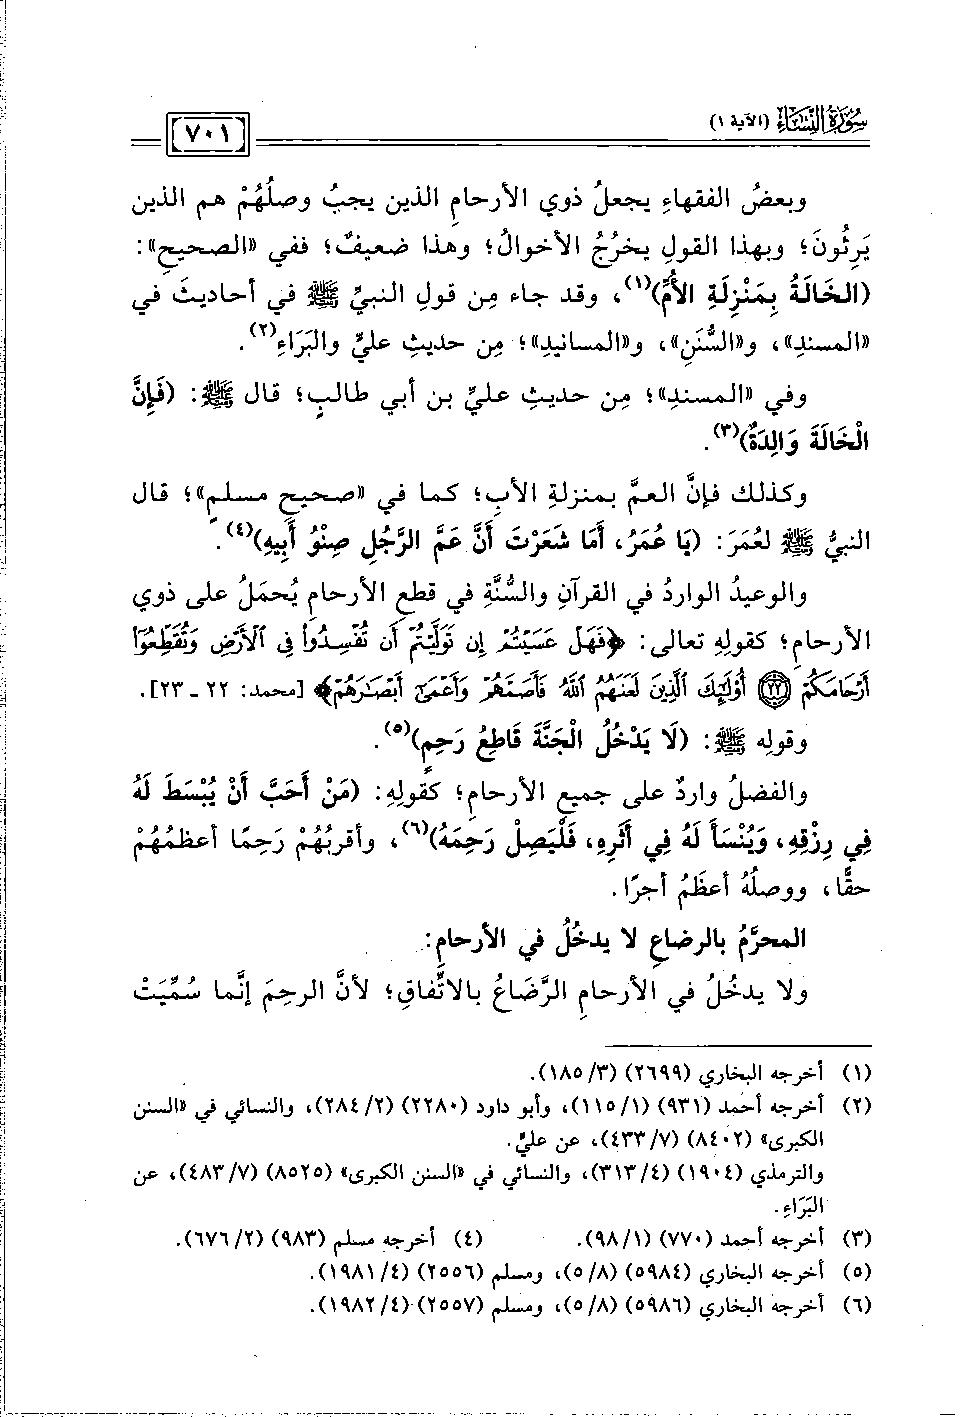 سُورَةُ النِّسَاءِ (الآية ١)
٧٠١
وبعضُ الفقهاءِ يجعلُ ذوي الأرحامِ الذين يجبُ وصلُهُمْ هم الذين
يَرِثُونَ؛ وبهذا القولِ يخرُجُ الأخوالُ؛ وهذا ضعيفٌ؛ ففي «الصحيحِ»:
(الخَالَةُ بِمَنْزِلَةِ الأُمِّ)(١)، وقد جاء مِن قولِ النبيِّ ﷺ في أحاديثَ في
«المسندِ»، و«السُّنَنِ»، و«المسانيدِ»؛ مِن حديثِ عليٍّ والبَرَاءِ(٢).
وفي «المسندِ»؛ مِن حديثِ عليِّ بن أبي طالبٍ؛ قال ﷺ: (فَإِنَّ
الْخَالَةَ وَالِدَةٌ)(٣).
وكذلك فإنَّ العمَّ بمنزلةِ الأبِ؛ كما في «صحيحِ مسلمٍ»؛ قال
النبيُّ ﷺ لعُمَرَ: (يَا عُمَرُ، أَمَا شَعَرْتَ أَنَّ عَمَّ الرَّجُلِ صِنْوُ أَبِيهِ)(٤).
والوعيدُ الواردُ في القرآنِ والسُّنَّةِ في قطعِ الأرحامِ يُحمَلُ على ذوي
الأرحامِ؛ كقولِهِ تعالى: ﴿فَهَلْ عَسَيْتُمْ إِن تَوَلَّيْتُمْ أَن تُفْسِدُوا۟ فِى ٱلْأَرْضِ وَتُقَطِّعُوٓا۟
أَرْحَامَكُمْ ۝٢٢ أُو۟لَـٰٓئِكَ ٱلَّذِينَ لَعَنَهُمُ ٱللَّهُ فَأَصَمَّهُمْ وَأَعْمَىٰٓ أَبْصَـٰرَهُمْ﴾ [محمد: ٢٢ ـ ٢٣].
وقولِه ﷺ: (لَا يَدْخُلُ الْجَنَّةَ قَاطِعُ رَحِمٍ)(٥).
والفضلُ واردٌ على جميعِ الأرحامِ؛ كقولِهِ: (مَنْ أَحَبَّ أَنْ يُبْسَطَ لَهُ
فِي رِزْقِهِ، وَيُنْسَأَ لَهُ فِي أَثَرِهِ، فَلْيَصِلْ رَحِمَهُ)(٦)، وأقربُهُمْ رَحِمًا أعظمُهُمْ
حقًّا، ووصلُهُ أعظَمُ أجرًا.
المحرَّمُ بالرضاعِ لا يدخُلُ في الأرحامِ:
ولا يدخُلُ في الأرحامِ الرَّضَاعُ بالاتِّفاقِ؛ لأنَّ الرحِمَ إنَّما سُمِّيَتْ
(١) أخرجه البخاري (٢٦٩٩) (٣/ ١٨٥).
(٢) أخرجه أحمد (٩٣١) (١/ ١١٥)، وأبو داود (٢٢٨٠) (٢/ ٢٨٤)، والنسائي في «السنن
الكبرى» (٨٤٠٢) (٧/ ٤٣٣)، عن عليٍّ.
والترمذي (١٩٠٤) (٤/ ٣١٣)، والنسائي في «السنن الكبرى» (٨٥٢٥) (٧/ ٤٨٣)، عن
البَرَاءِ.
(٣) أخرجه أحمد (٧٧٠) (١/ ٩٨). (٤) أخرجه مسلم (٩٨٣) (٢/ ٦٧٦).
(٥) أخرجه البخاري (٥٩٨٤) (٨/ ٥)، ومسلم (٢٥٥٦) (٤/ ١٩٨١).
(٦) أخرجه البخاري (٥٩٨٦) (٨/ ٥)، ومسلم (٢٥٥٧) (٤/ ١٩٨٢).